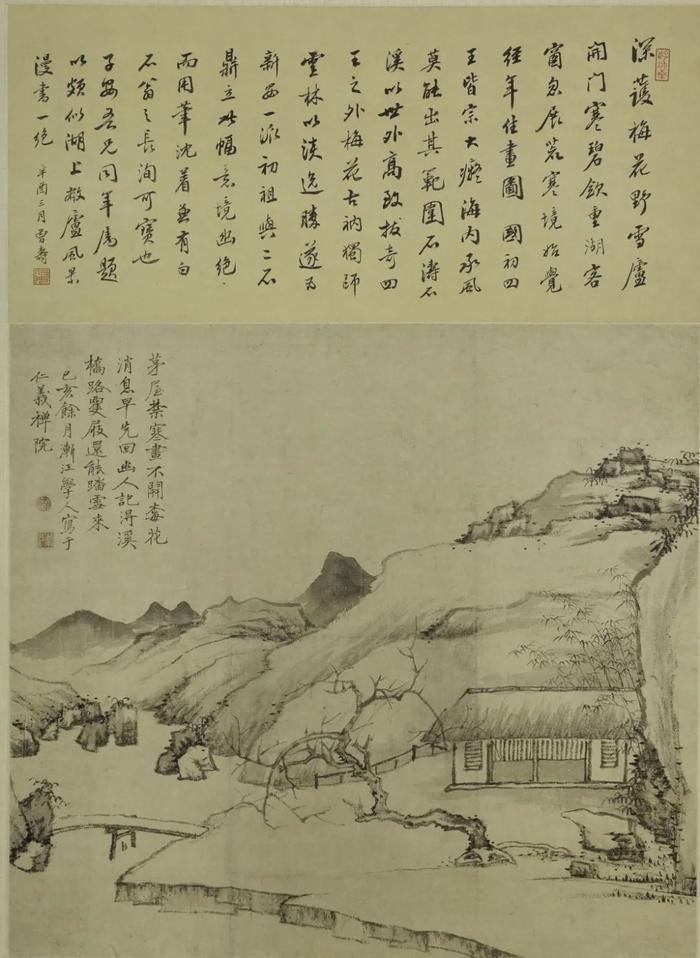 深護梅花野雪廬
開門寒碧欲重湖客
窗忽展荒寒境始覺
經年住畫圖 國初四
王皆宗大癡海内承風
莫能出其範圍石濤石
溪以世外高致拔奇四
王之外梅花古衲獨師
雲林以淡逸勝遂爲
新安一派初祖與二石
鼎立此幅意境幽絕
而用筆沈着兼有白
石翁之長洵可寶也
子安吾兄同年屬題
以頗似湖上敝廬風景
漫書一絕 辛酉三月曾壽
茅屋禁寒晝不開梅花
消息早先回幽人記得溪
橋路雙屐還能踏雪來
己亥餘月漸江學人寫于
仁義禅院